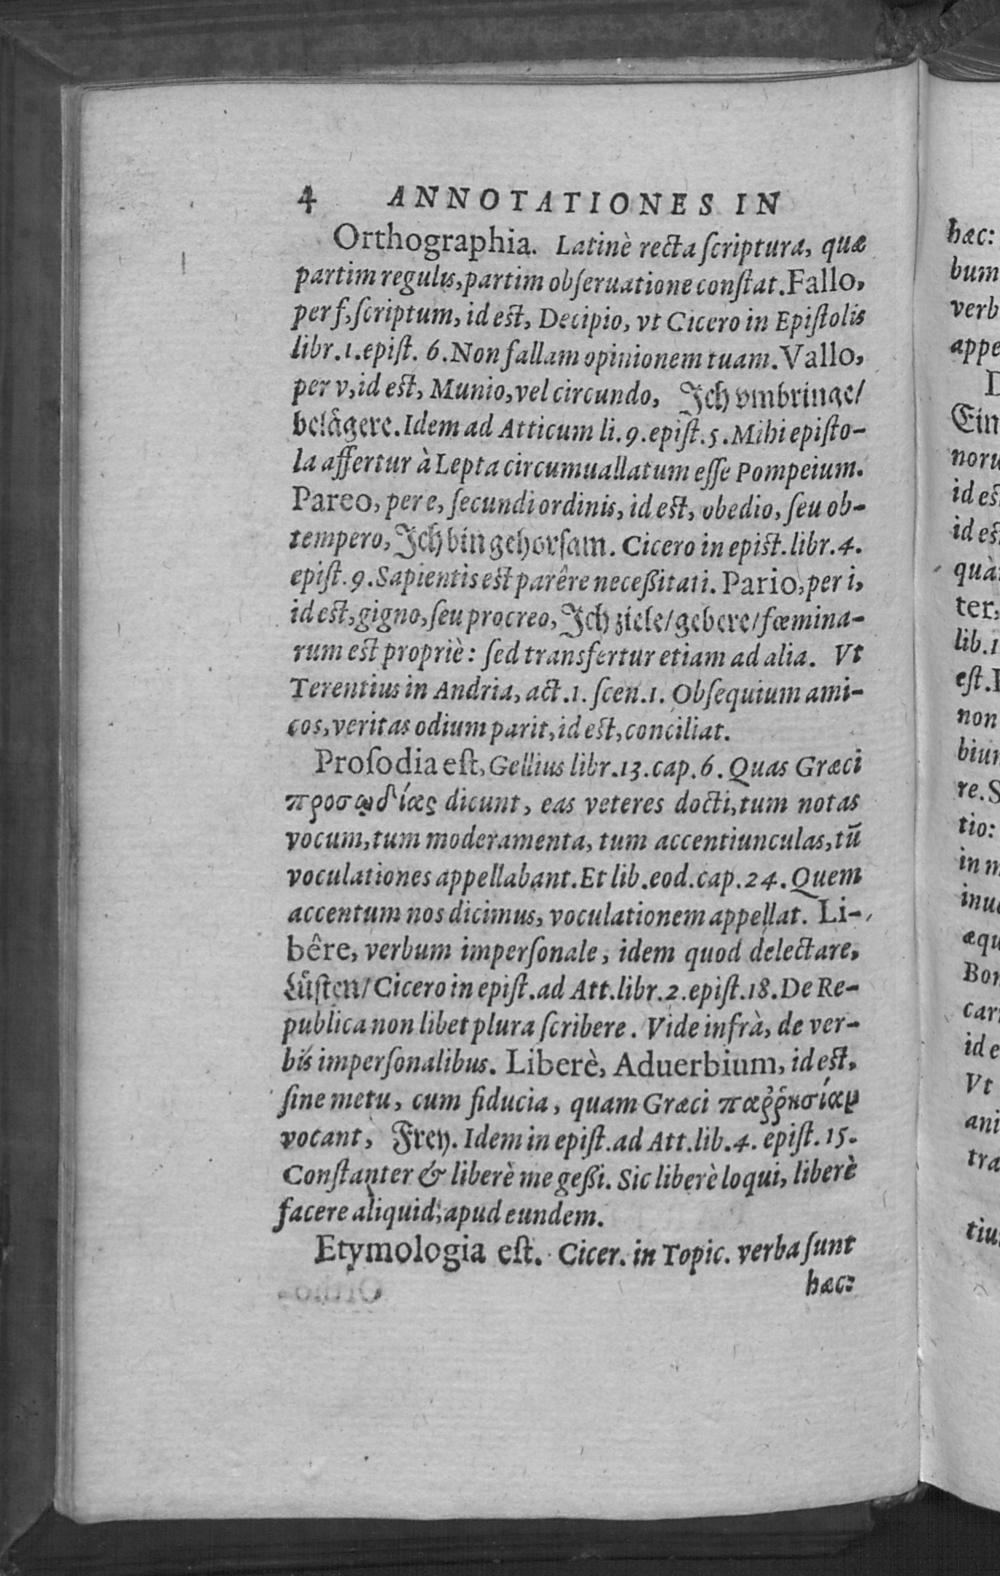 4 ANNOTATIONES IN
Orthographia. Latinè recta ſcriptura, quæ
partim regulis, partim obſeruatione conſtat. Fallo,
per f, ſcriptum, id eſt, Decipio, vt Cicero in Epiſtolis
libr. 1. epiſt. 6. Non fallam opinionem tuam. Vallo,
per v, id eſt, Munio, vel circundo, Ich vmbringe/
belågere. Idem ad Atticum li. 9. epiſt. 5. Mihi epiſto-
la affertur à Lepta circumuallatum eſſe Pompeium.
Pareo, per e, ſecundi ordinis, id eſt, obedio, ſeu ob-
tempero, Ich bin gehorſam. Cicero in epiſt. libr. 4.
epiſt. 9. Sapientis eſt parêre neceßitati. Pario, per i,
id eſt, gigno, ſeu procreo, Ich ziele/gebere/fœmina-
rum eſt propriè: ſed transfertur etiam ad alia. Vt
Terentius in Andria, act. 1. ſcen. 1. Obſequium ami-
cos, veritas odium parit, id eſt, conciliat.
Proſodia eſt, Gellius libr. 13. cap. 6. Quas Græci
προσῳδίας dicunt, eas veteres docti, tum notas
vocum, tum moderamenta, tum accentiunculas, tū
voculationes appellabant. Et lib. eod. cap. 24. Quem
accentum nos dicimus, voculationem appellat. Li-
bêre, verbum imperſonale, idem quod delectare,
Lůſten/ Cicero in epiſt. ad Att. libr. 2. epiſt. 18. De Re-
publica non libet plura ſcribere. Vide infrà, de ver-
bis imperſonalibus. Liberè, Aduerbium, id eſt,
ſine metu, cum fiducia, quam Græci παῤῥησίαν
vocant, Frey. Idem in epiſt. ad Att. lib. 4. epiſt. 15.
Conſtanter & liberè me geßi. Sic liberè loqui, liberè
facere aliquid, apud eundem.
Etymologia eſt. Cicer. in Topic. verba ſunt
hæc:
hæc:
bum
verb
appe
D
Ein
noru
id eſ
id eſ
quà
ter,
lib. 1
eſt.
non
biun
re. S
tio:
in
inue
æqu
Bon
car
id e
Vt
ani
tra
tiu